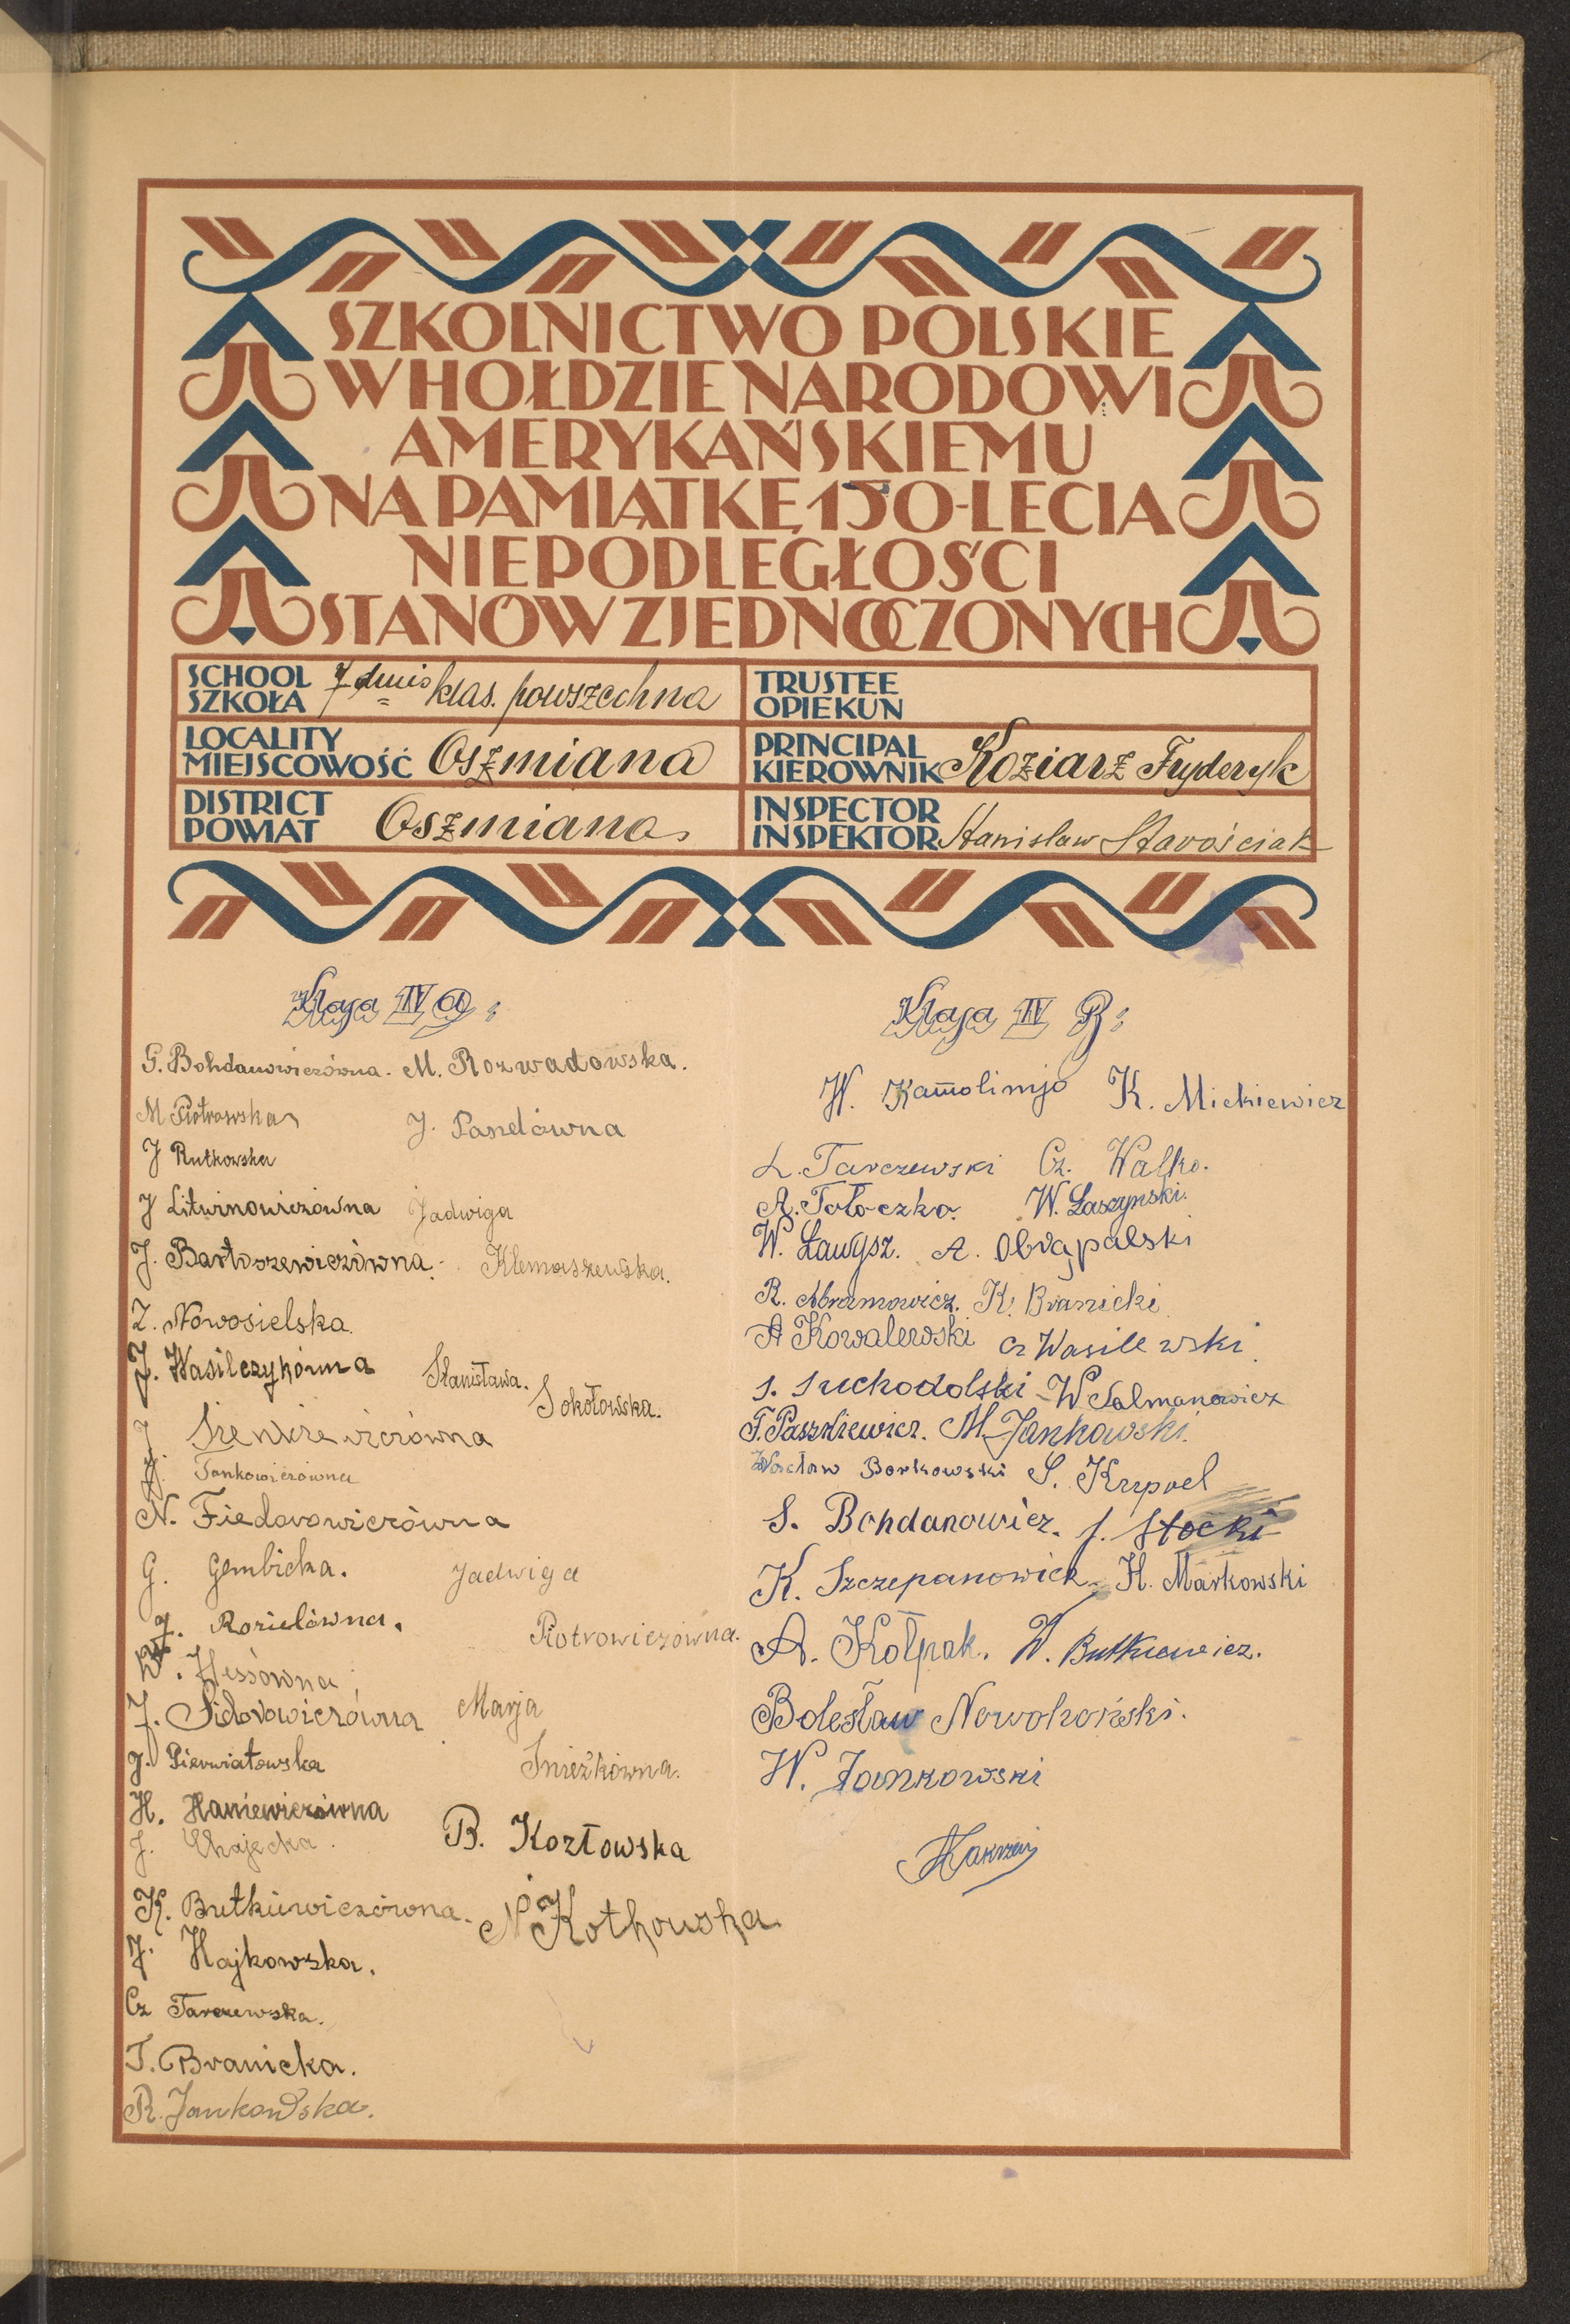 SZKOLNICTWO POLSKIE
W HOŁDZIE NARODOWI
AMERYKAŃSKIEMU
NA PAMIĄTKĘ 150-LECIA
NIEPODLEGŁOŚCI
STANÓW ZJEDNOCZONYCH
SCHOOL
SZKOŁA 7 dmio klas. powszechna
TRUSTEE
OPIEKUN
LOCALITY
MIEJSCOWOŚĆ Oszmiana
PRINCIPAL
KIEROWNIK Koziarz Fryderyk
DISTRICT
POWIAT Oszmiana
INSPECTOR
INSPEKTOR Stanisław Starościak
Klasa IV a:
G. Bohdanowiczówna. M. Rozwadowska.
M Piotrowska
J. Pandówna
J Rutkowska
J Litwinowiczówna Jadwiga
J. Bartoszewiczówna. Klemaszewska.
Z. Nowosielska
J. Wasilczykówna Stanisława.
Sokołowska.
J. Sienkiewiczówna
J. Jankowiczówna
N. Fiedorowiczówna
G. Gembicka. Jadwiga
J. Roziełówna. Piotrowiczówna.
W. Hessówna
J. Sidorowiczówna Marja
J. Pierwiatowska Śnieżkówna.
H. Haniewiczówna
J. Chajecka. B. Kozłowska
K. Butkiewiczówna. N Kotkowska
J. Hajkowska.
Cz Tarczewska.
T. Branicka.
R. Jankowska.
Klasa IV B:
W. K. Mickiewicz
L. Tarczewski Cz. Walko.
A. Tołoczko. W. Łaszynski.
W. Ławgsz. A. Obrąpalski
R. Abramowicz. K. Branicki
A Kowalewski Cz Wasilewski.
S. Suchodolski W Salmanowicz
F. Paszkiewicz. M. Jankowski.
Wacław Borkowski S. Krupoel
S. Bohdanowicz. J. Stocki
K. Szczepanowicz H. Markowski
A. Kołpak. W. Butkiewicz.
Bolesław Nowohoński.
W. Jankowski